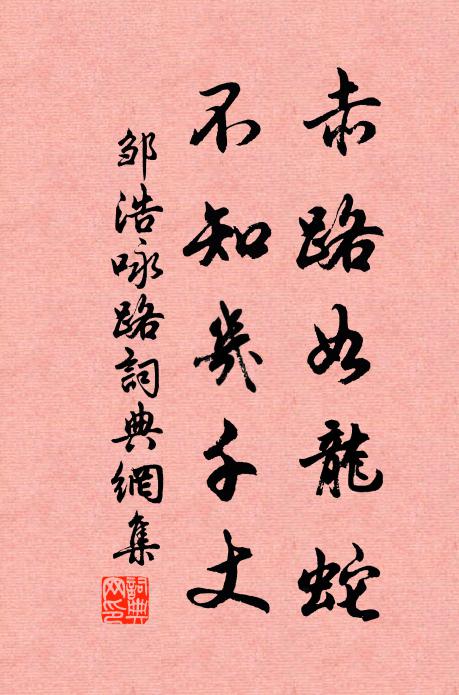 赤路如龍蛇
不知幾千丈
邹浩咏路詞典網集
詞典网印